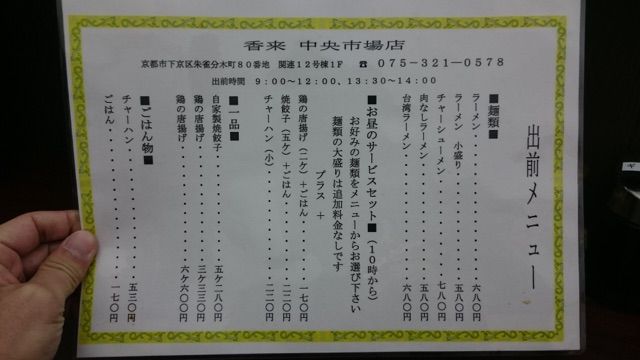 香来 中央市場店
京都市下京区朱雀分木町80番地 関連12号棟1F ☎ 075-321-0578
出前時間 9:00~12:00、13:30~14:00
出前メニュー
■麺類■
ラーメン・・・・・・・・・・・六八〇円
ラーメン 小盛り・・・・・・・五八〇円
チャーシューメン・・・・・・・七八〇円
肉なしラーメン・・・・・・・・五八〇円
台湾ラーメン・・・・・・・・・六八〇円
■お昼のサービスセット■(10時から)
お好みの麺類をメニューからお選び下さい
麺類の大盛りは追加料金なしです
プラス +
鶏の唐揚げ(二ケ)+ごはん・・・一七〇円
焼餃子(五ケ)+ごはん・・・・・二二〇円
チャーハン(小)・・・・・・・・二二〇円
■一品■
自家製焼餃子・・・・・・・五ケ二八〇円
鶏の唐揚げ・・・・・・・・三ケ三三〇円
鶏の唐揚げ・・・・・・・・六ケ六〇〇円
■ごはん物■
チャーハン・・・・・・・・・・五三〇円
ごはん・・・・・・・・・・・・一七〇円